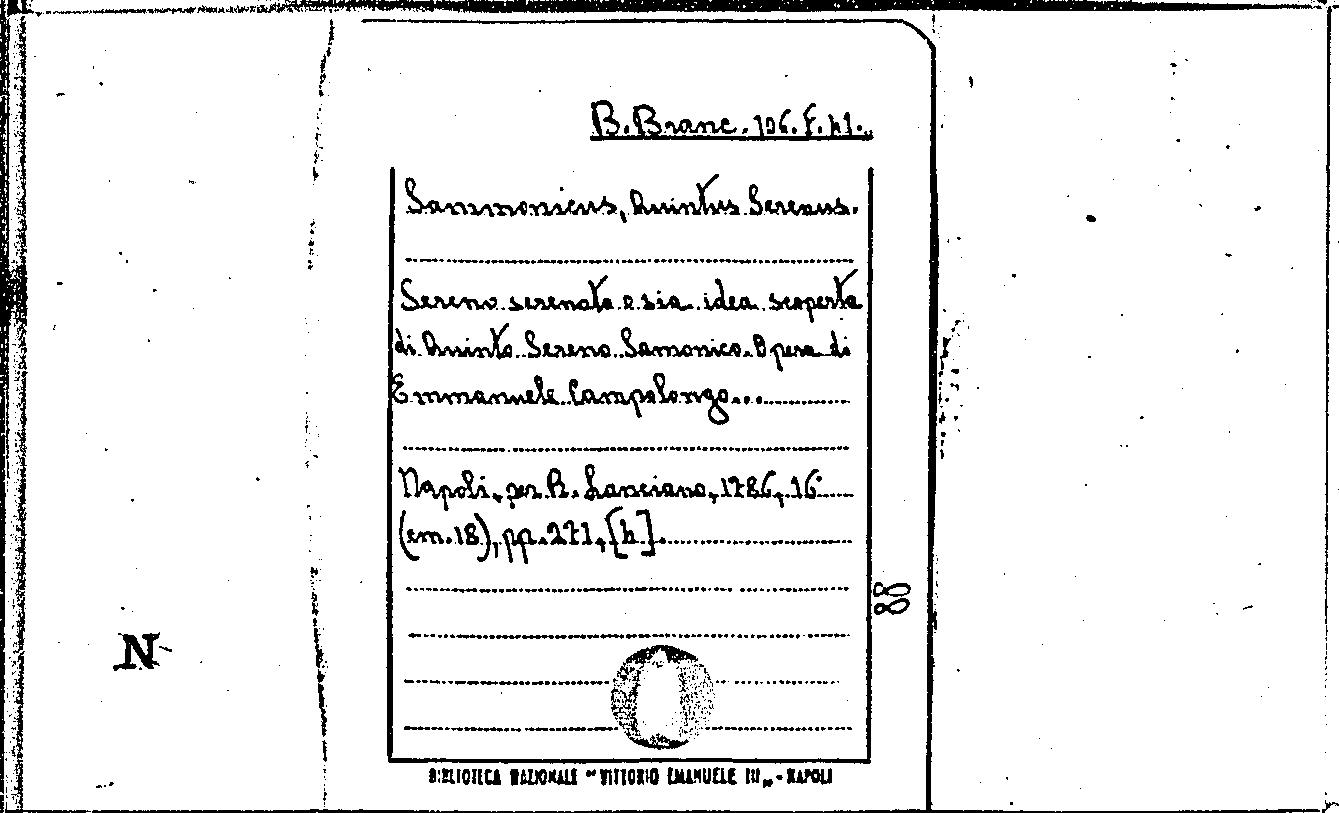 B. Branc. 106. F. 41.
Sammonicus, Quintus Serenus.
Sereno serenato o sia idea scoperta
di Quinto Sereno Samonico. Opera di
Emmanuele Campolongo...
Napoli, per R. Lanciano, 1786, 16°
(cm. 18), pp. 271, [4].
88
N
BIBLIOTECA NAZIONALE "VITTORIO EMANUELE III„ - NAPOLI